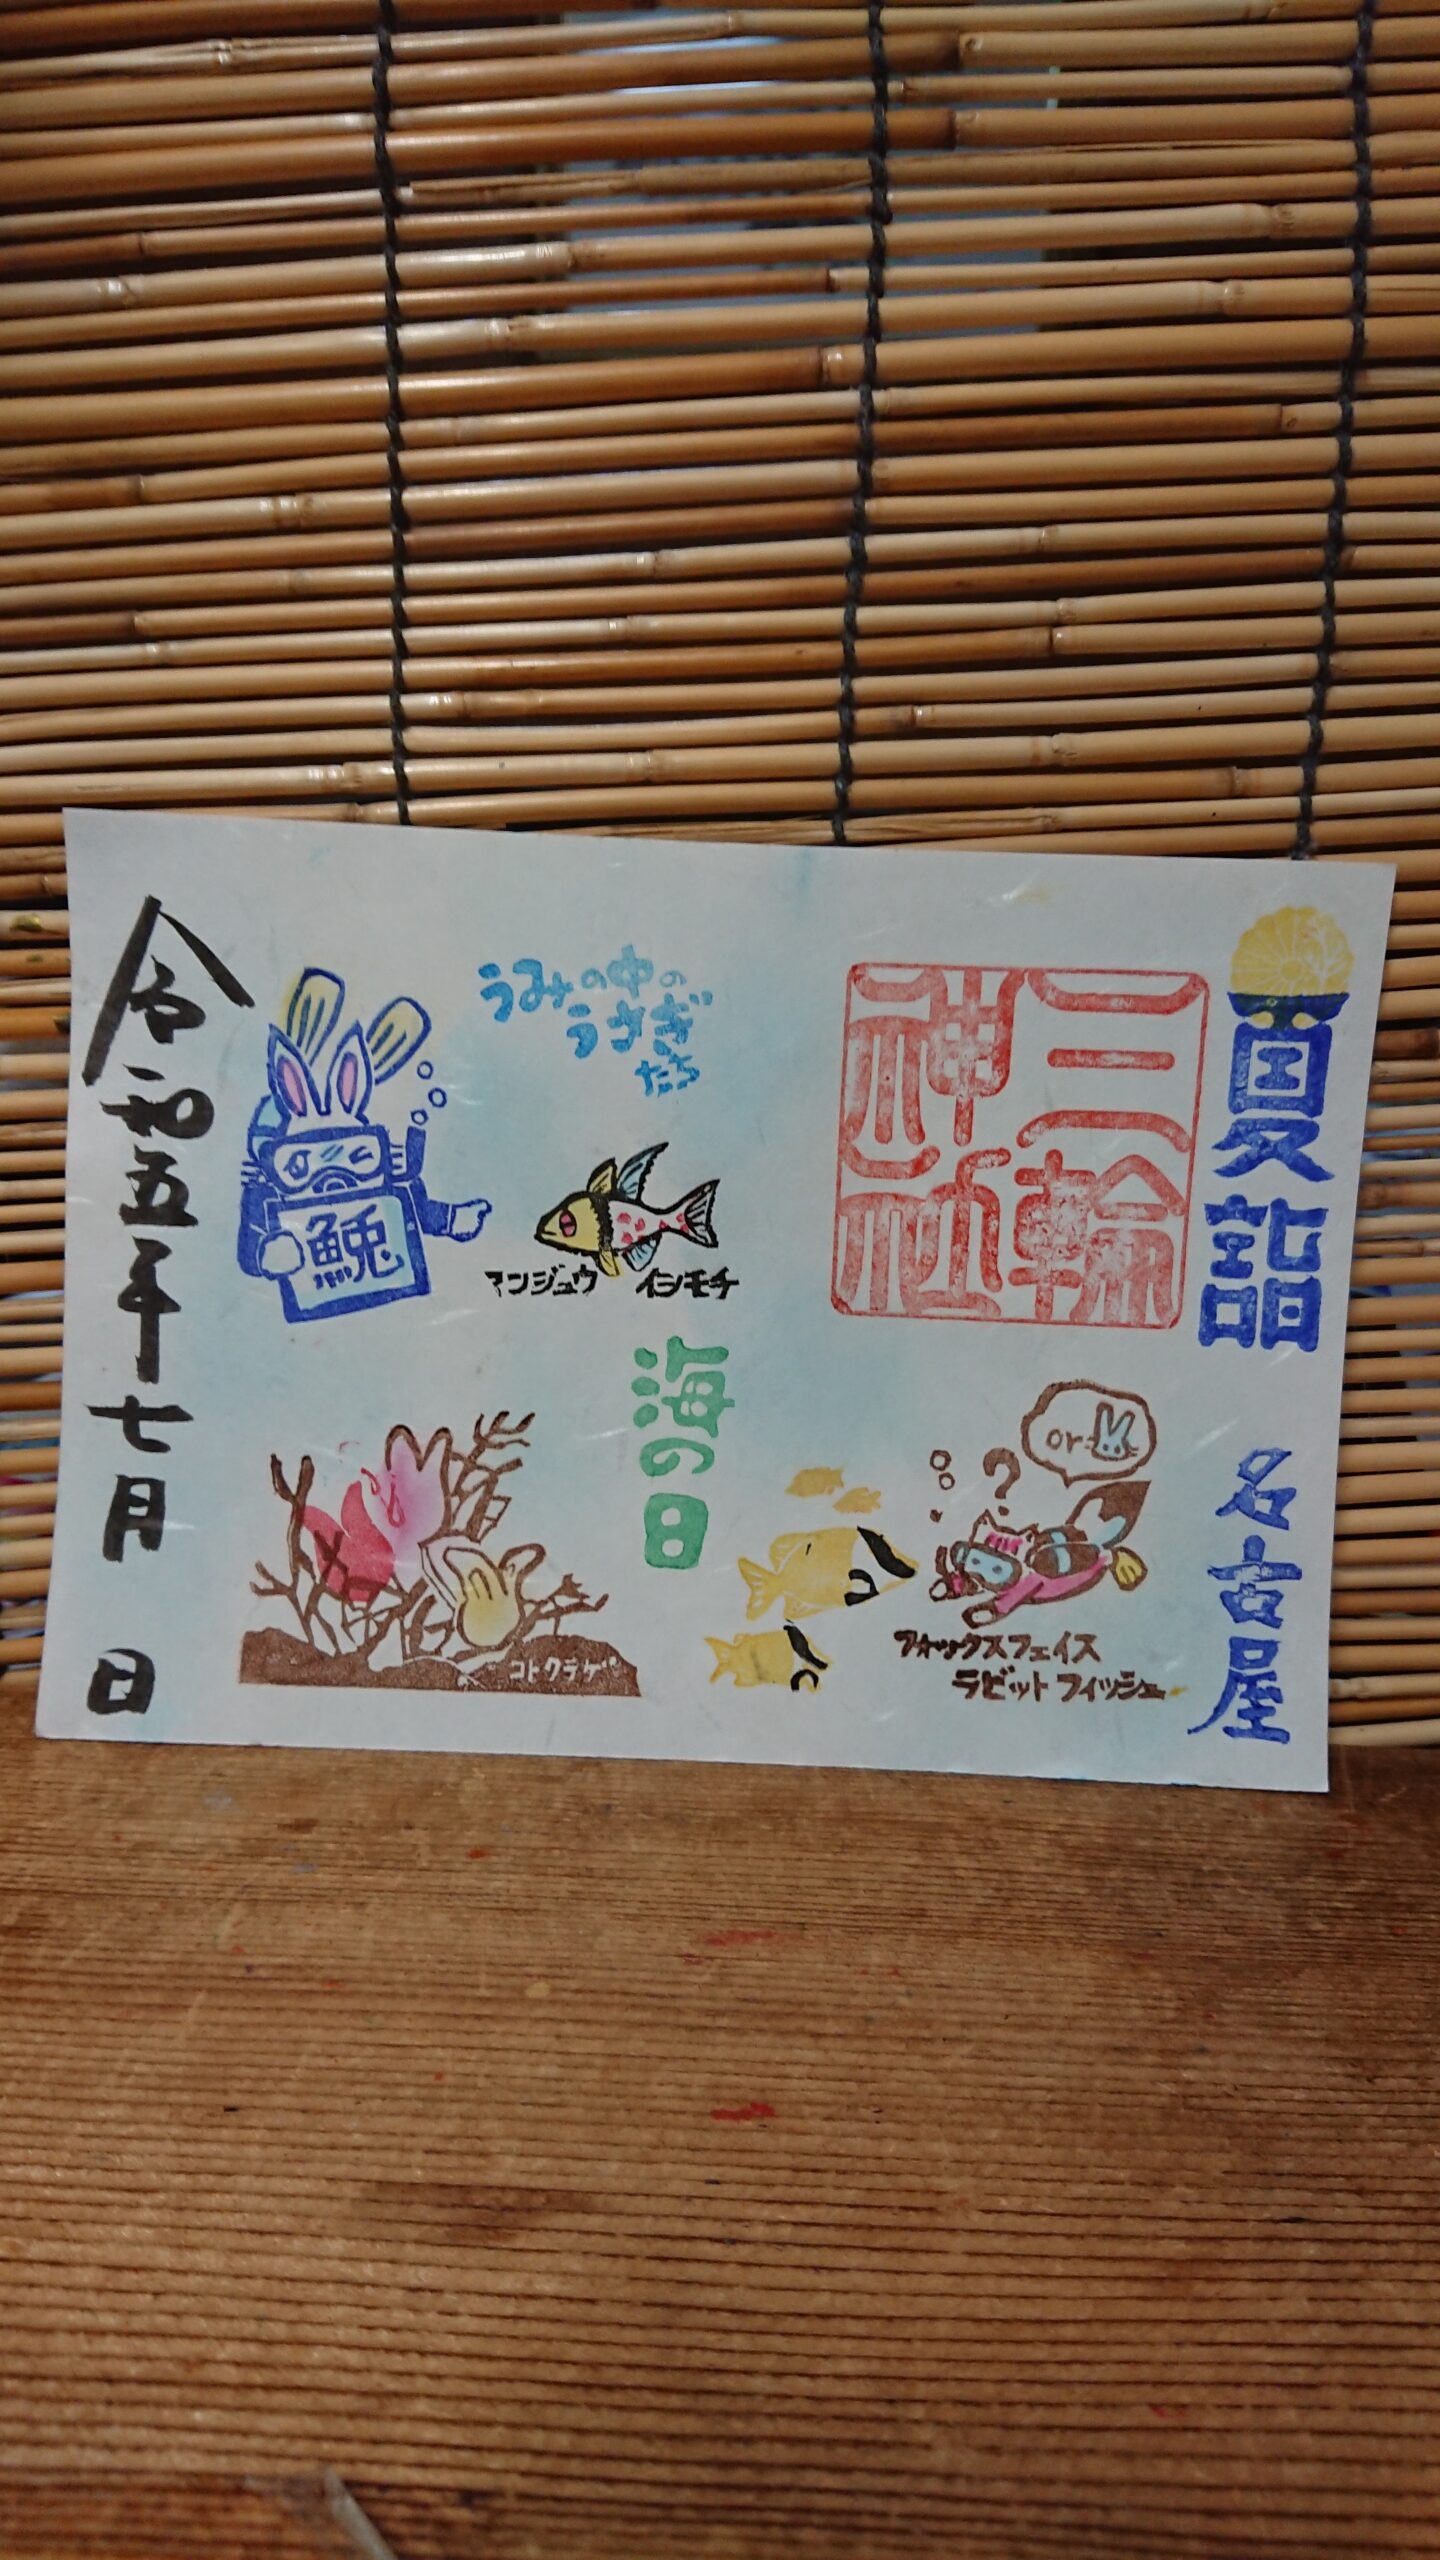 夏詣
名古屋
三輪
神社
うみの中の
うさぎ
たち
鮸
マンジュウ イシモチ
海の日
or
?
フォックスフェイス
ラビットフィッシュ
コトクラゲ
令和五年七月 日